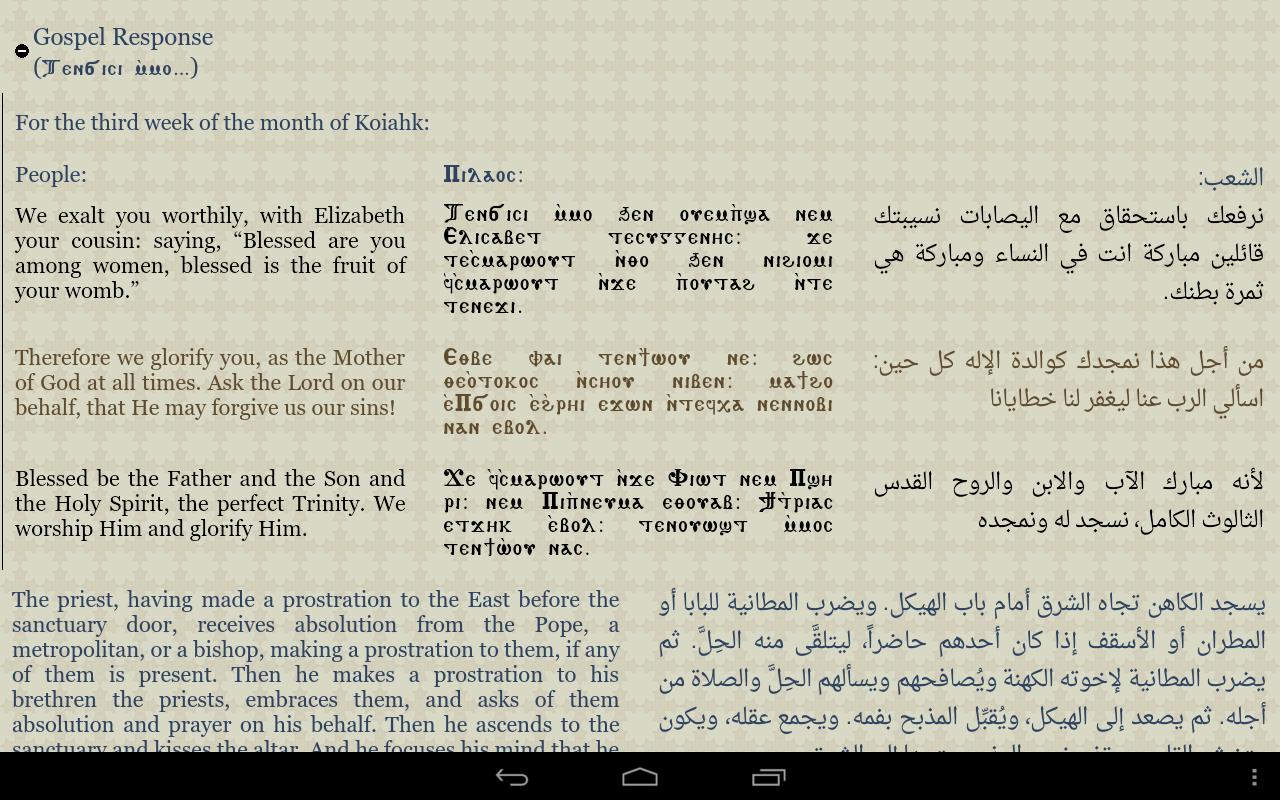 Gospel Response
(Ⲧⲉⲛϭⲓⲥⲓ ⲙ̀ⲙⲟ...)
For the third week of the month of Koiahk:
People:
We exalt you worthily, with Elizabeth
your cousin: saying, “Blessed are you
among women, blessed is the fruit of
your womb.”
Ⲡⲓⲗⲁⲟⲥ:
Ⲧⲉⲛϭⲓⲥⲓ ⲙ̀ⲙⲟ ϧⲉⲛ ⲟⲩⲉⲙⲡ̀ϣⲁ ⲛⲉⲙ
Ⲉⲗⲓⲥⲁⲃⲉⲧ ⲧⲉⲥⲩⲅⲅⲉⲛⲏⲥ: ϫⲉ
ⲧⲉⲥ̀ⲙⲁⲣⲱⲟⲩⲧ ⲛ̀ⲑⲟ ϧⲉⲛ ⲛⲓϩⲓⲟⲙⲓ
ϥ̀ⲥⲙⲁⲣⲱⲟⲩⲧ ⲛ̀ϫⲉ ⲡ̀ⲟⲩⲧⲁϩ ⲛ̀ⲧⲉ
ⲧⲉⲛⲉϫⲓ.
الشعب:
نرفعك باستحقاق مع اليصابات نسيبتك
قائلين مباركة انت في النساء ومباركة هي
ثمرة بطنك.
Therefore we glorify you, as the Mother
of God at all times. Ask the Lord on our
behalf, that He may forgive us our sins!
Ⲉⲑⲃⲉ ⲫⲁⲓ ⲧⲉⲛϯⲱⲟⲩ ⲛⲉ: ϩⲱⲥ
ⲑⲉⲟ̀ⲧⲟⲕⲟⲥ ⲛ̀ⲥⲏⲟⲩ ⲛⲓⲃⲉⲛ: ⲙⲁϯϩⲟ
ⲉ̀Ⲡϭⲟⲓⲥ ⲉ̀ϩ̀ⲣⲏⲓ ⲉϫⲱⲛ ⲛ̀ⲧⲉϥⲭⲁ ⲛⲉⲛⲛⲟⲃⲓ
ⲛⲁⲛ ⲉⲃⲟⲗ.
من أجل هذا نمجدك كوالدة الإله كل حين:
اسألي الرب عنا ليغفر لنا خطايانا
Blessed be the Father and the Son and
the Holy Spirit, the perfect Trinity. We
worship Him and glorify Him.
Ϫⲉ ϥ̀ⲥⲙⲁⲣⲱⲟⲩⲧ ⲛ̀ϫⲉ Ⲫⲓⲱⲧ ⲛⲉⲙ Ⲡϣⲏ
ⲣⲓ: ⲛⲉⲙ Ⲡⲓⲡ̀ⲛⲉⲩⲙⲁ ⲉⲑⲟⲩⲁⲃ: Ϯⲧ̀ⲣⲓⲁⲥ
ⲉⲧϫⲏⲕ ⲉ̀ⲃⲟⲗ: ⲧⲉⲛⲟⲩⲱϣⲧ ⲙ̀ⲙⲟⲥ
ⲧⲉⲛϯⲱ̀ⲟⲩ ⲛⲁⲥ.
لأنه مبارك الآب والابن والروح القدس
الثالوث الكامل، نسجد له ونمجده
The priest, having made a prostration to the East before the
sanctuary door, receives absolution from the Pope, a
metropolitan, or a bishop, making a prostration to them, if any
of them is present. Then he makes a prostration to his
brethren the priests, embraces them, and asks of them
absolution and prayer on his behalf. Then he ascends to the
sanctuary and kisses the altar. And he focuses his mind that he
يسجد الكاهن تجاه الشرق أمام باب الهيكل. ويضرب المطانية للبابا أو
المطران أو الأسقف إذا كان أحدهم حاضراً، ليتلقَّى منه الحِلَّ. ثم
يضرب المطانية لإخوته الكهنة ويُصافحهم ويسألهم الحِلَّ والصلاة من
أجله. ثم يصعد إلى الهيكل، ويُقبِّل المذبح بفمه. ويجمع عقله، ويكون